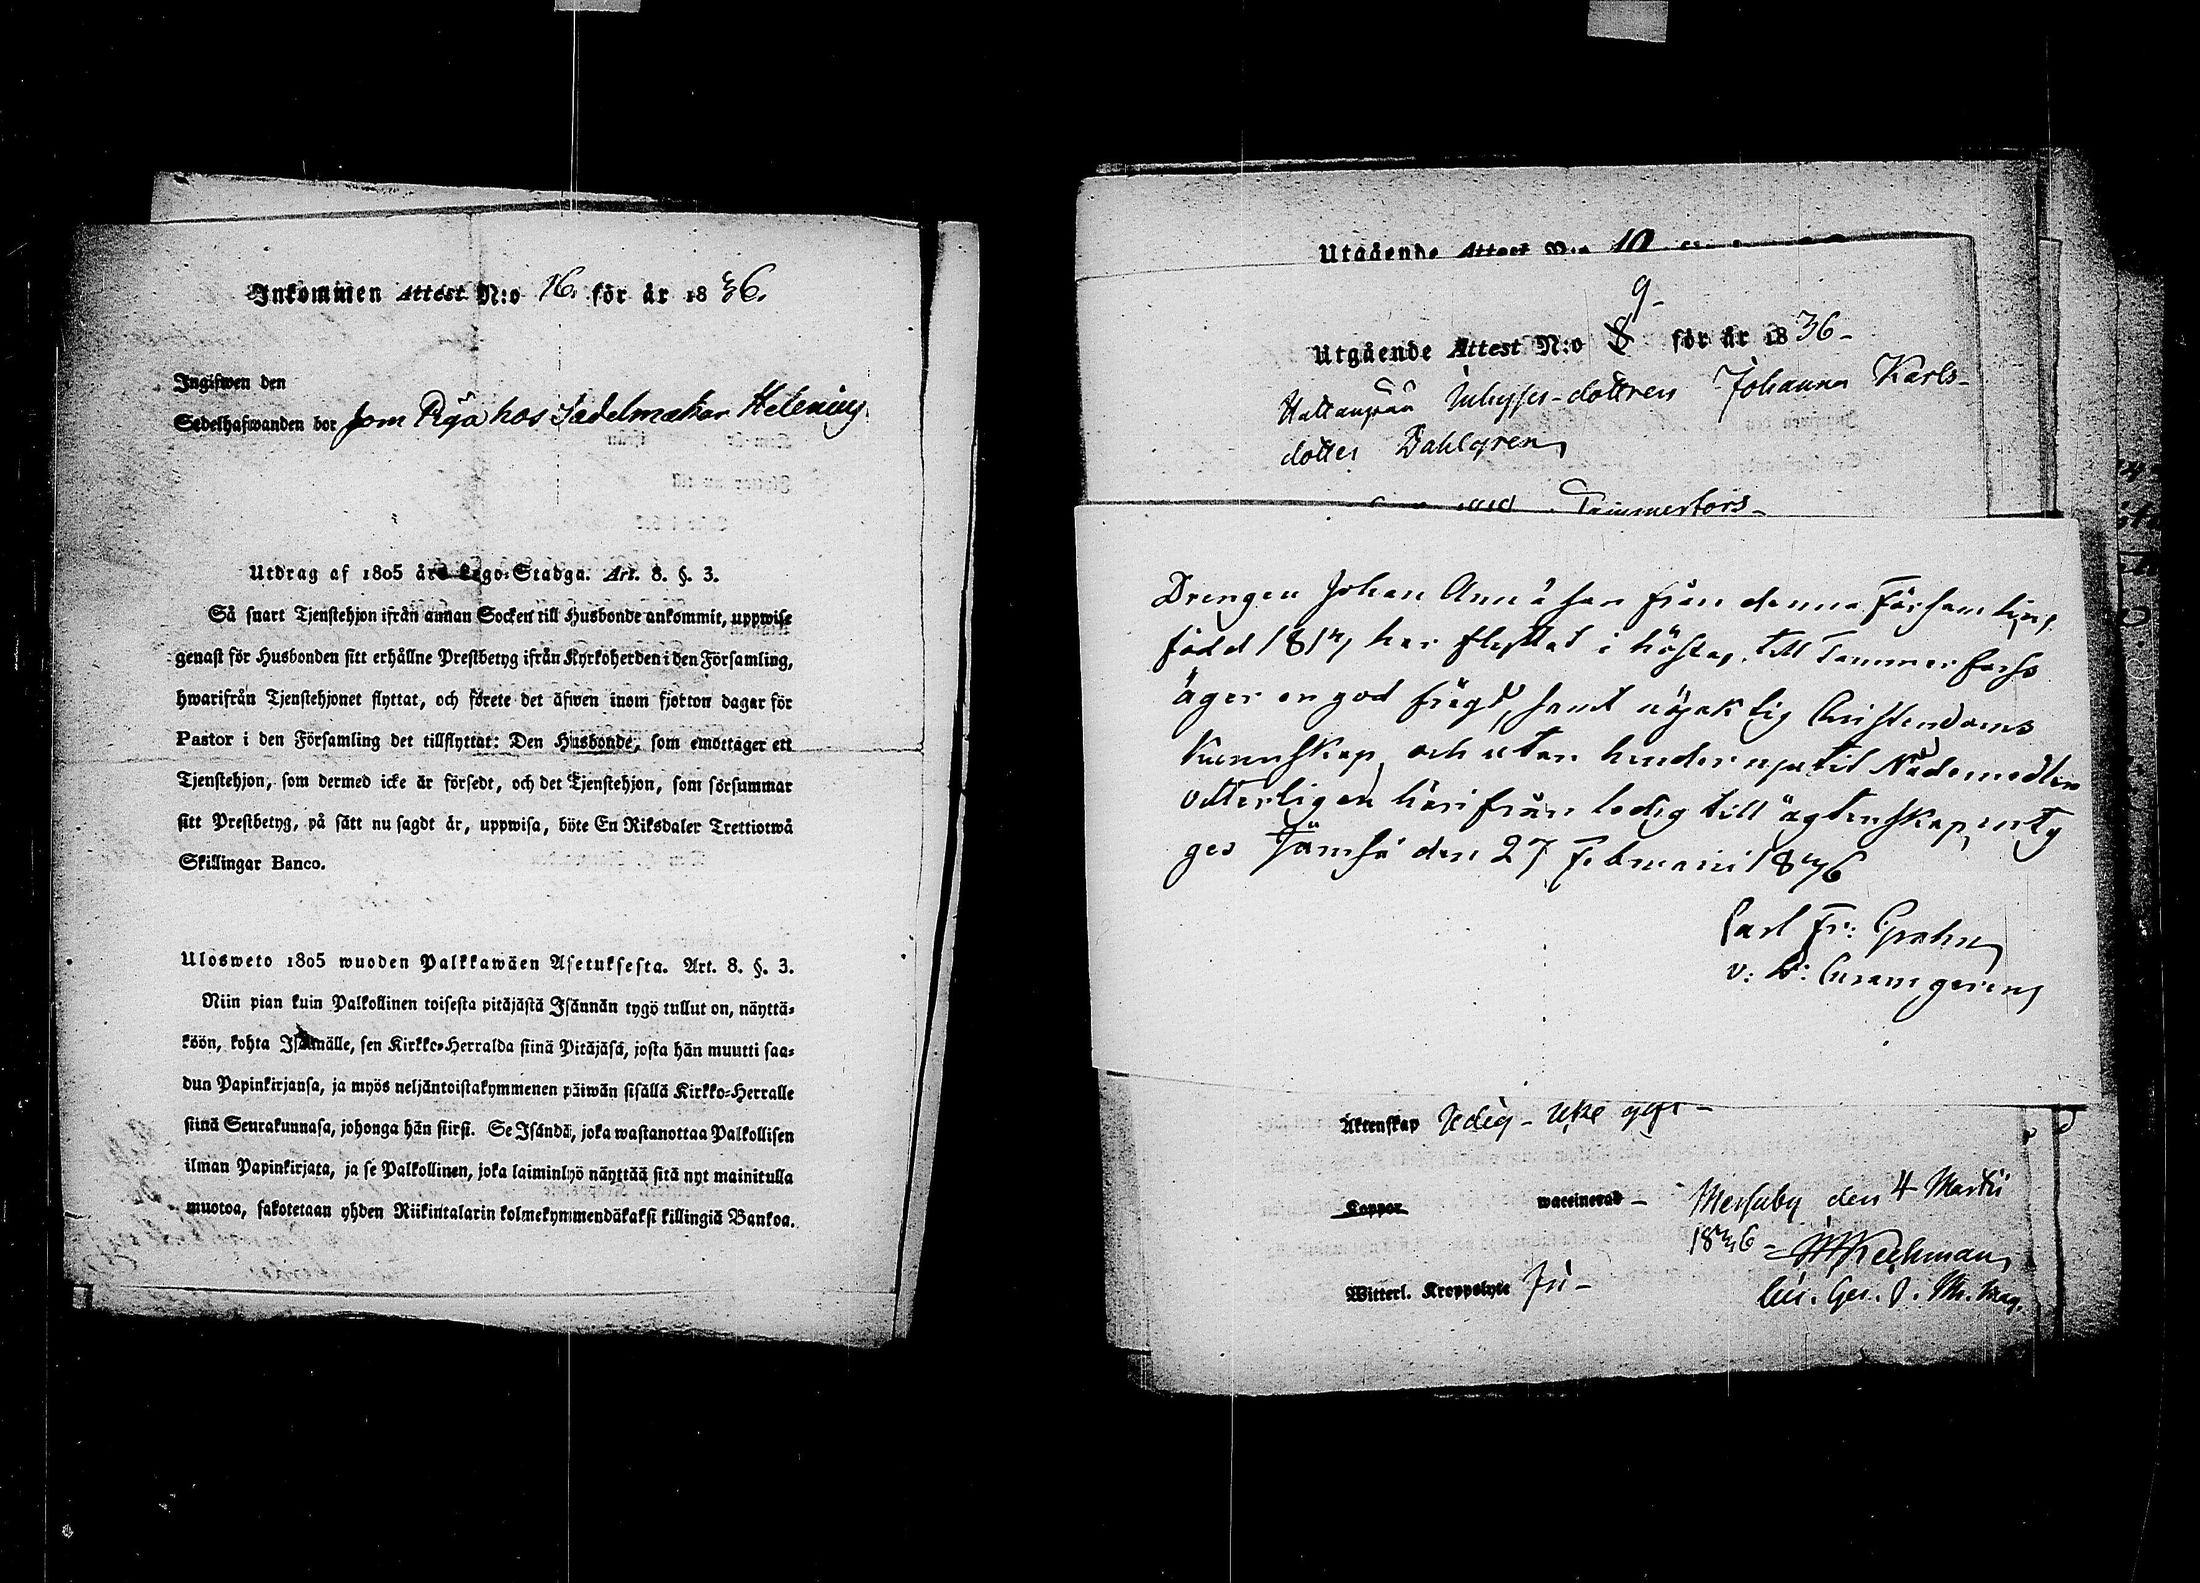 Inkommen Attest N:o 16. för år 1836.
Ingifwen den
Sedelhafwanden bor som Piga hos Sadelmakar Helening
Utdrag af 1805 års Lego-Stadga. Art. 8. §. 3.
Så snart Tjenstehjon ifrån annan Socken till Husbonde ankommit, uppwise
genast för Husbonden sitt erhållne Prestbetyg ifrån Kyrkoherden i den Församling,
hwarifrån Tjenstehjonet flyttat, och förete det äfwen inom fjorton dagar för
Pastor i den Församling det tillflyttat: Den Husbonde, som emottager ett
Tjenstehjon, som dermed icke är försedt, och det Tjenstehjon, som försummar
sitt Prestbetyg, på sätt nu sagdt är, uppwisa, böte En Riksdaler Trettiotwå
Skillingar Banco.
Ulosweto 1805 wuoden Palkkawäen Asetuksesta. Art. 8. §. 3.
Niin pian kuin Palkollinen toisesta pitäjästä Isännän tygö tullut on, näyttä-
köön, kohta Isännälle, sen Kirkko-Herralda siinä Pitäjäsä, josta hän muutti saa-
dun Papinkirjansa, ja myös neljäntoistakymmenen päiwän sisällä Kirkko-Herralle
siinä Seurakunnasa, johonga hän siirsi. Se Isändä, joka wastanottaa Palkollisen
ilman Papinkirjata, ja se Palkollinen, joka laiminlyö näyttää sitä nyt mainitulla
muotoa, sakotetaan yhden Riikintalarin kolmekymmendäkaksi killingiä Bankoa.
Utgående Attest N:o 10
9-
Utgående Attest N:o 8 för år 1836-
Inhyses-dottren Johanna Karls-
dotter Dahlgren
Tammerfors-
Drengen Johan Annäson från denna Församling
född 1817, har flyttat i höstas till Tammerfors
äger en god frägd, samt nöjaktig Christendoms
kunnskap, och utan hinder njutit Nådemedlen
vitterligen härifrån ledig till ägtenskap, bety
ges Jämsä den 27 Februarii 1836
Carl Fr: Grahn
v: Curam gerens
Äktenskap ledig-
Koppor waccinerad - Messuby den 4 Martii
1836 -
Witterl. Kroppslyte